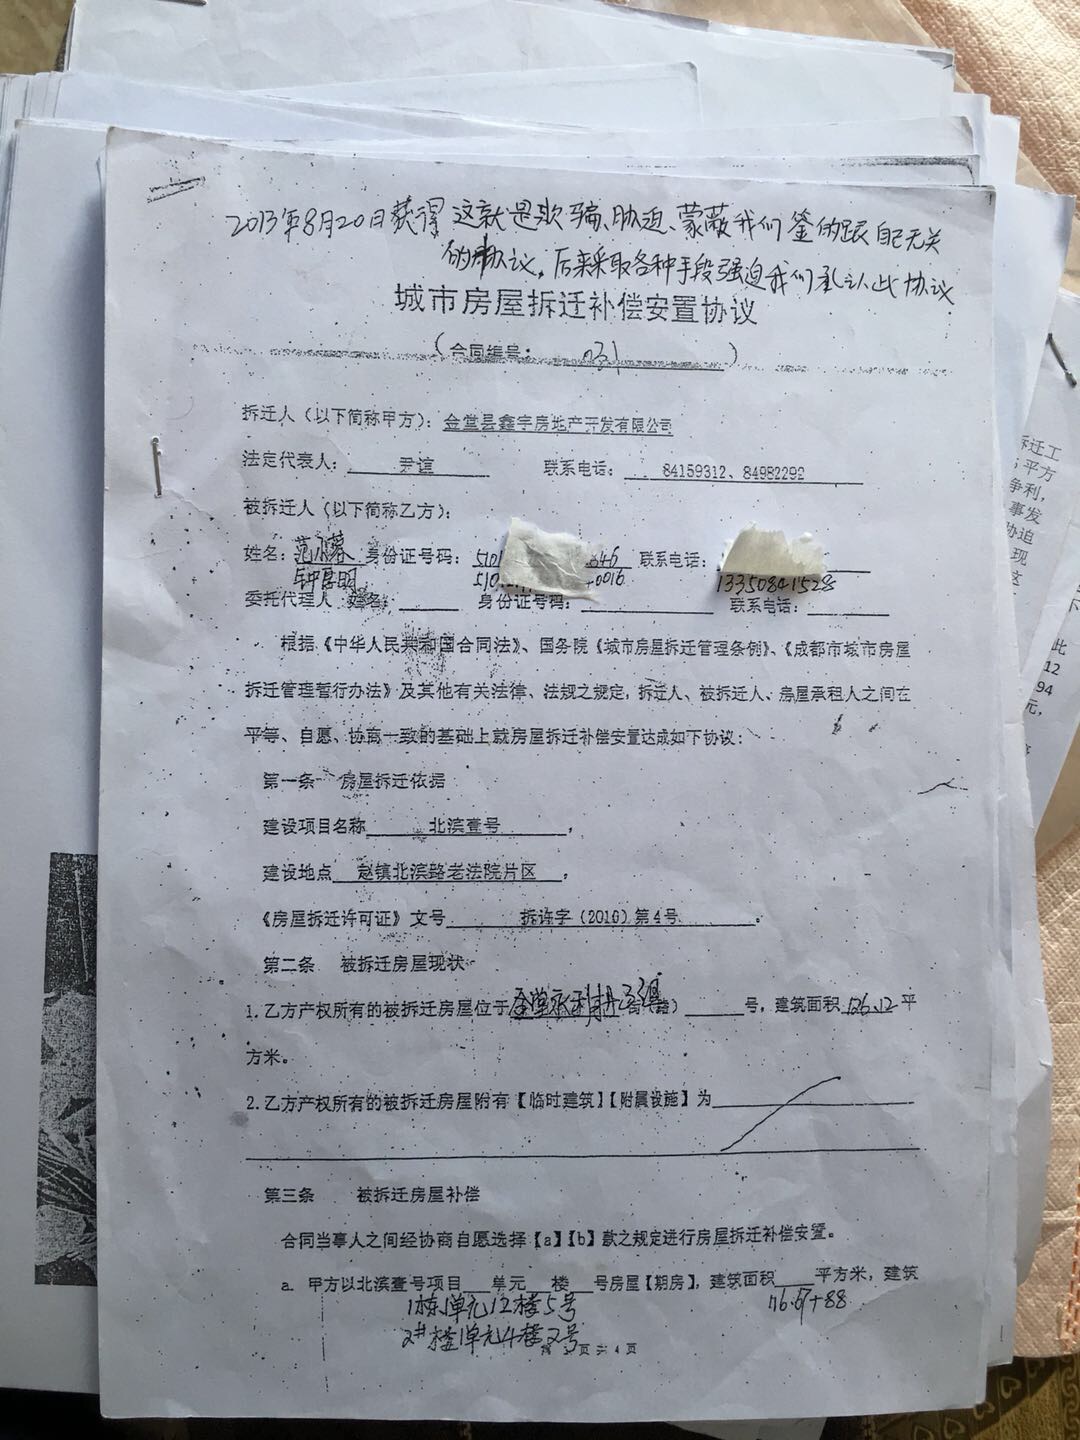 2013年8月20日获得 这就是欺骗、胁迫、蒙蔽我们签的跟自己无关
的协议。后来采取各种手段强迫我们承认此协议
城市房屋拆迁补偿安置协议
(合同编号: 031 )
拆迁人(以下简称甲方): 金堂县鑫宇房地产开发有限公司
法定代表人: 尹谊 联系电话: 84159312、84982292
被拆迁人(以下简称乙方):
姓名: 身份证号码: 5101 846 联系电话:
510 0016 13350841528
委托代理人 姓名: 身份证号码: 联系电话:
根据《中华人民共和国合同法》、国务院《城市房屋拆迁管理条例》、《成都市城市房屋
拆迁管理暂行办法》及其他有关法律、法规之规定,拆迁人、被拆迁人、房屋承租人之间在
平等、自愿、协商一致的基础上就房屋拆迁补偿安置达成如下协议:
第一条 房屋拆迁依据
建设项目名称 北滨壹号 ,
建设地点 赵镇北滨路老法院片区 ,
《房屋拆迁许可证》文号 拆许字(2010)第4号 。
第二条 被拆迁房屋现状
1.乙方产权所有的被拆迁房屋位于 路) 号,建筑面积126.12平
方米。
2.乙方产权所有的被拆迁房屋附有【临时建筑】【附属设施】为
第三条 被拆迁房屋补偿
合同当事人之间经协商自愿选择【a】【b】款之规定进行房屋拆迁补偿安置。
a. 甲方以北滨壹号项目 单元 楼 号房屋【期房】,建筑面积 平方米,建筑
1栋1单元12楼5号 76.67+88
2#楼1单元4楼2号
页共4页
拆迁工
平方
争利,
事发
胁迫
现
这
下
此
12
94
元,